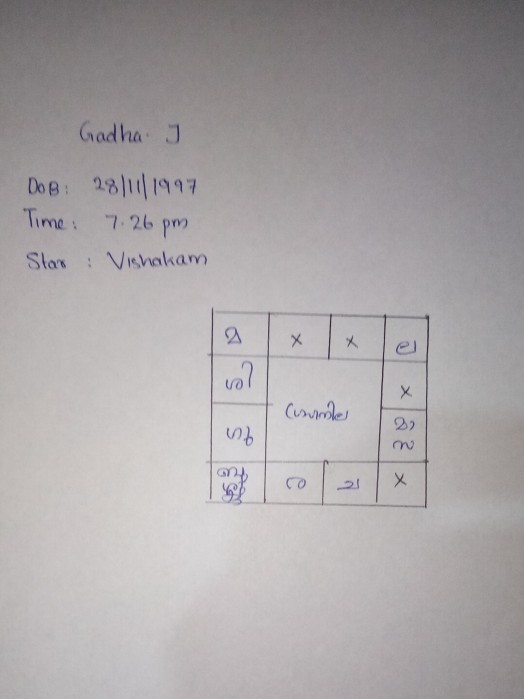 Gadha. J
DOB: 28/11/1997
Time: 7.26 pm
Star : Vishakam
മ x x ല
ശി x
ഗ്രഹനില
ഗു മാ
ബു ര ച x